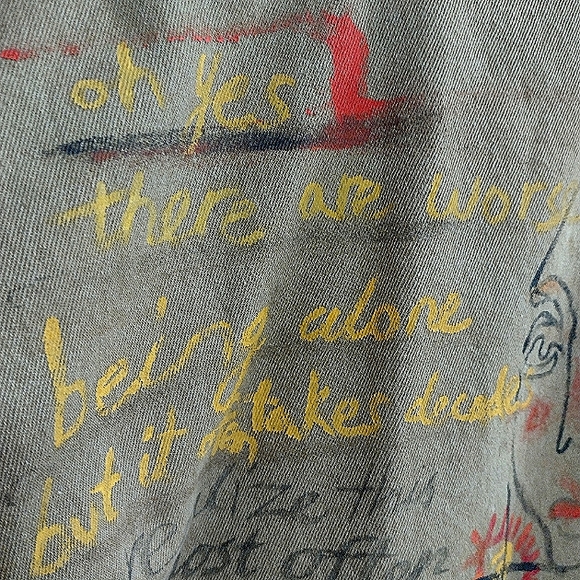 oh yes
there are wors
being alone
but it takes decade
ize this
ost often